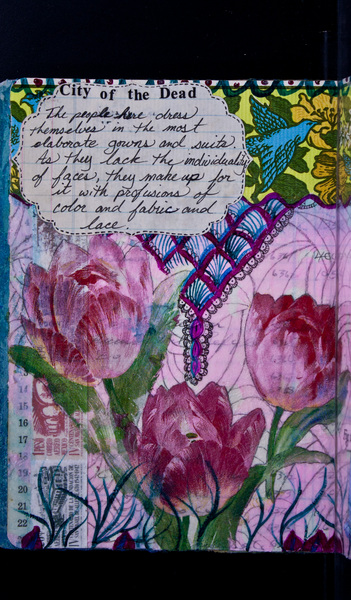 City of the Dead
The people here dress
themselves in the most
elaborate gowns and suits.
As they lack the individuality
of faces, they make up for
it with profusions of
color and fabric and
lace.
14
15
16
17
18
19
20
21
22